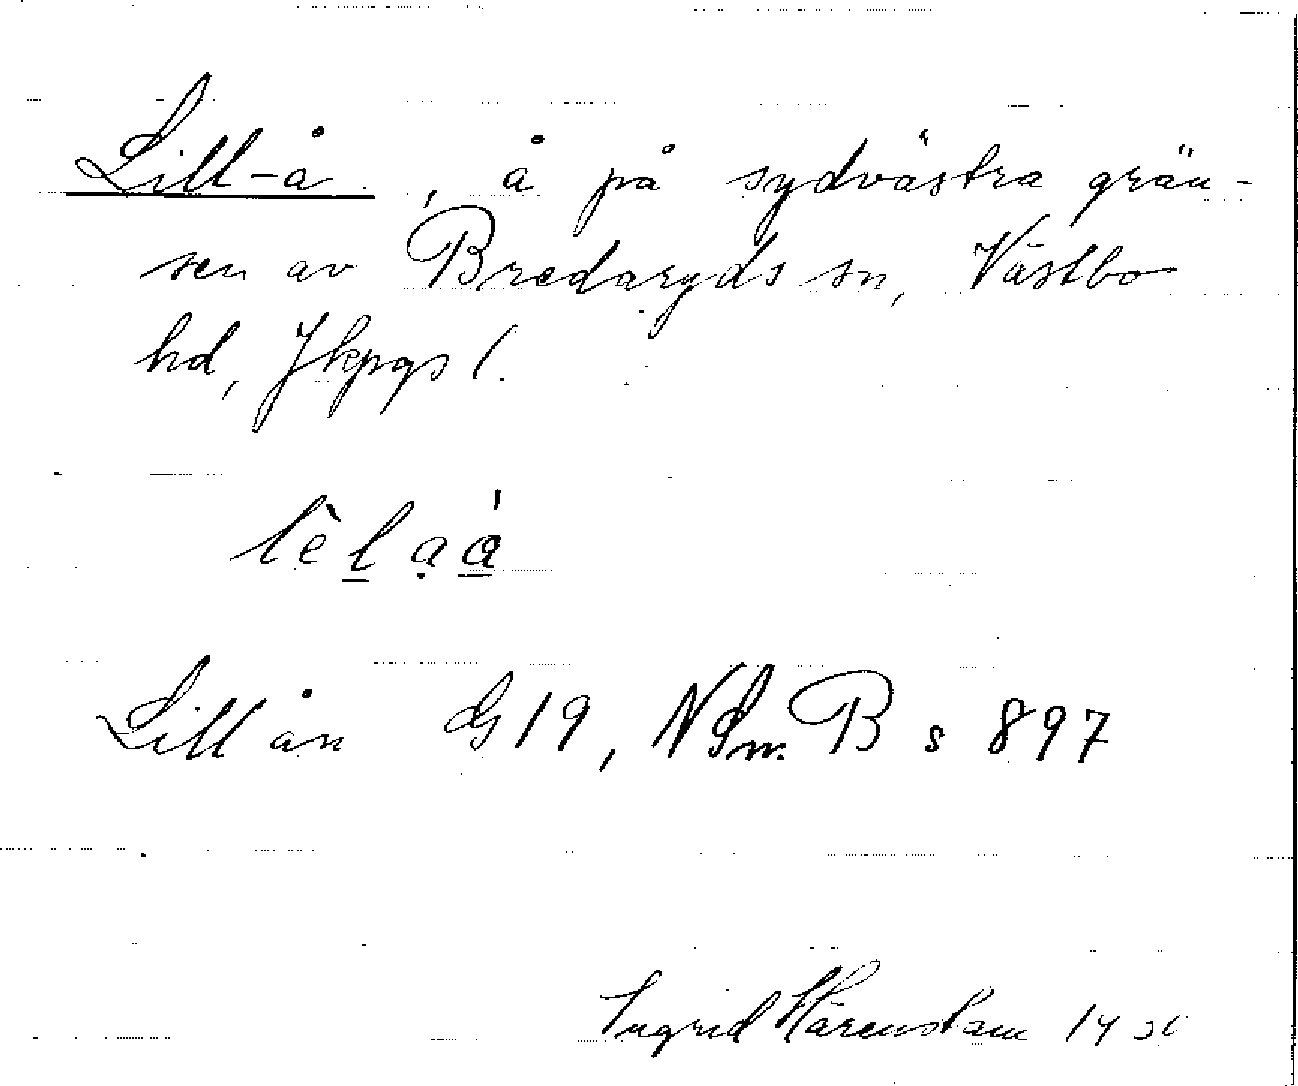 Lill-å, å på sydvästra grän-
sen av Bredaryds sn, Västbo
hd, Jkpgs l.
lèl̲ạá̲
Lillån G19, NSm. B s 897
Ingrid Härenstam